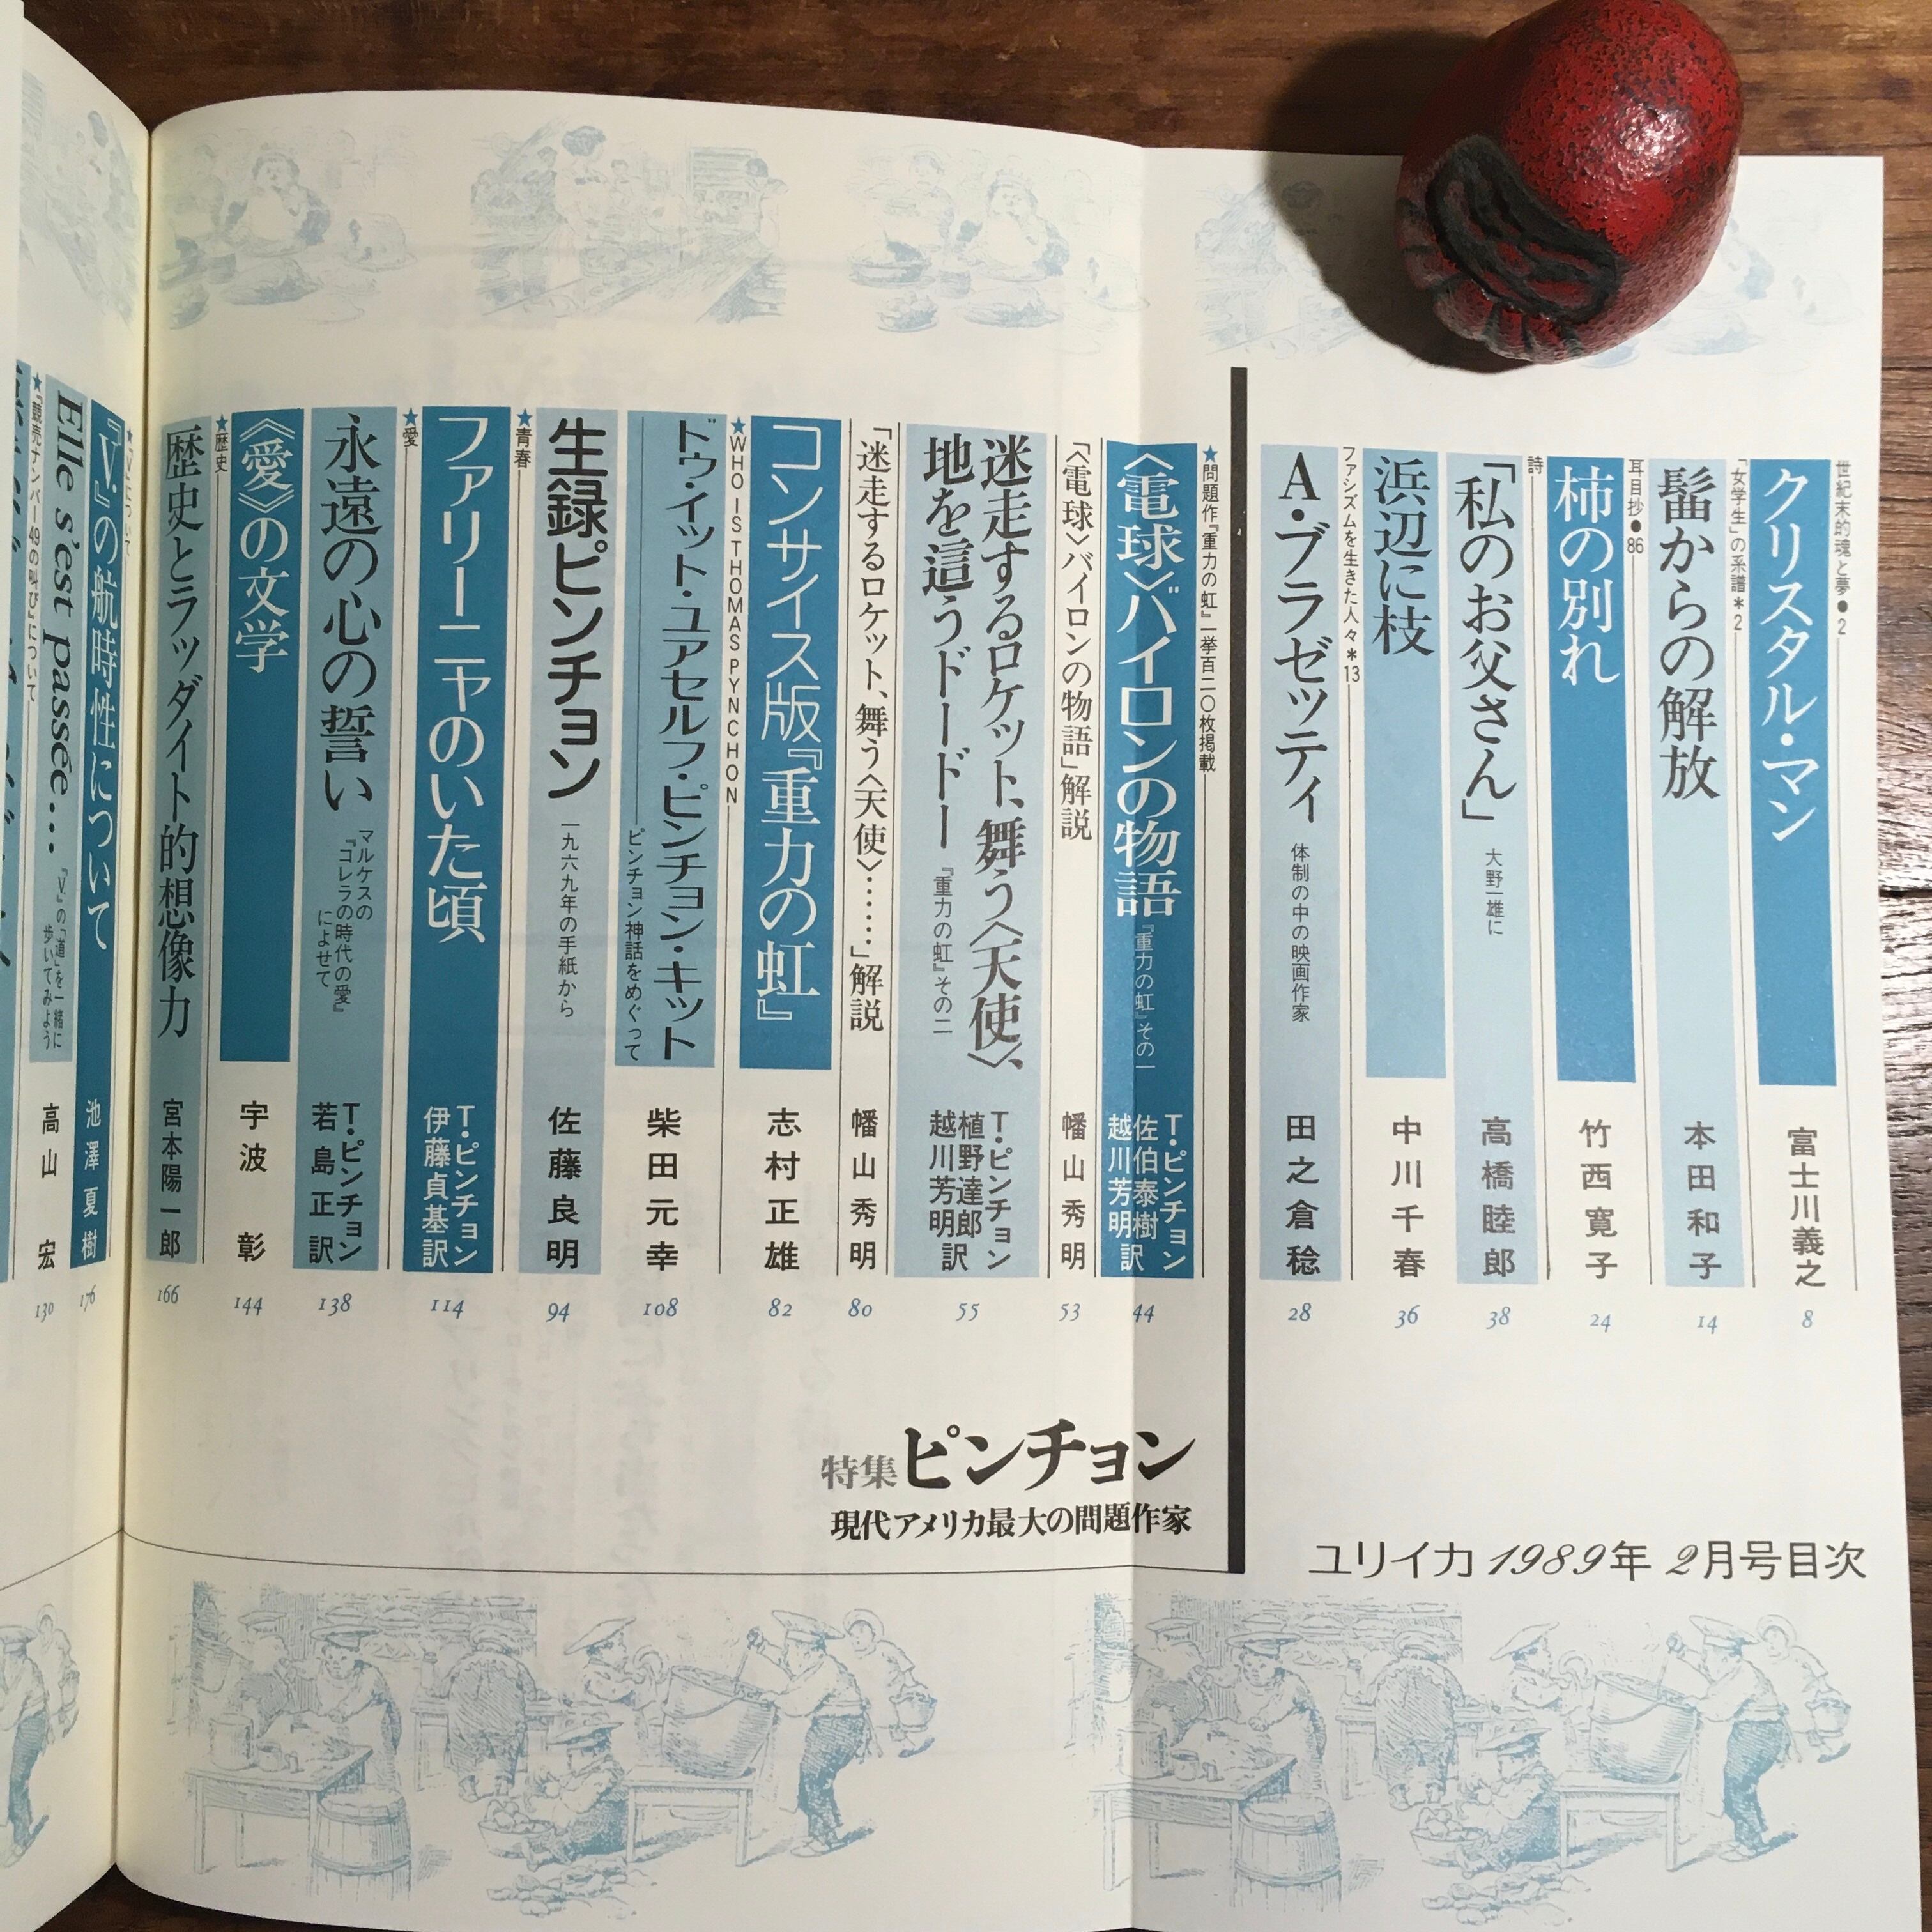 ユリイカ 1989年 2月号目次
世紀末的魂と夢●2
クリスタル・マン
富士川義之
8
「女学生」の系譜＊2
髷からの解放
本田和子
14
耳目抄●86
柿の別れ
竹西寛子
24
詩
「私のお父さん」
大野一雄に
高橋睦郎
38
浜辺に枝
中川千春
36
ファシズムを生きた人々＊13
A・ブラゼッティ
体制の中の映画作家
田之倉稔
28
特集ピンチョン
現代アメリカ最大の問題作家
★問題作『重力の虹』一挙百二〇枚掲載
〈電球〉バイロンの物語
『重力の虹』その一
T・ピンチョン
佐伯泰樹
越川芳明訳
44
「〈電球〉バイロンの物語」解説
幡山秀明
53
迷走するロケット、舞う〈天使〉、
地を這うドードー
『重力の虹』その二
T・ピンチョン
植野達郎
越川芳明訳
55
「迷走するロケット、舞う〈天使〉……」解説
幡山秀明
80
コンサイス版『重力の虹』
志村正雄
82
★WHO IS THOMAS PYNCHON
ドゥ・イット・ユアセルフ・ピンチョン・キット
ピンチョン神話をめぐって
柴田元幸
108
生録ピンチョン
一九六九年の手紙から
佐藤良明
94
★青春
ファリーニャのいた頃
T・ピンチョン
伊藤貞基訳
114
★愛
永遠の心の誓い
マルケスの
『コレラの時代の愛』
によせて
T・ピンチョン
若島正訳
138
《愛》の文学
宇波彰
144
★歴史
歴史とラッダイト的想像力
宮本陽一郎
166
★『V.』について
『V.』の航時性について
池澤夏樹
176
Elle s'est passée…
『V.』の「道」を一緒に
歩いてみよう
高山宏
130
★『競売ナンバー49の叫び』について